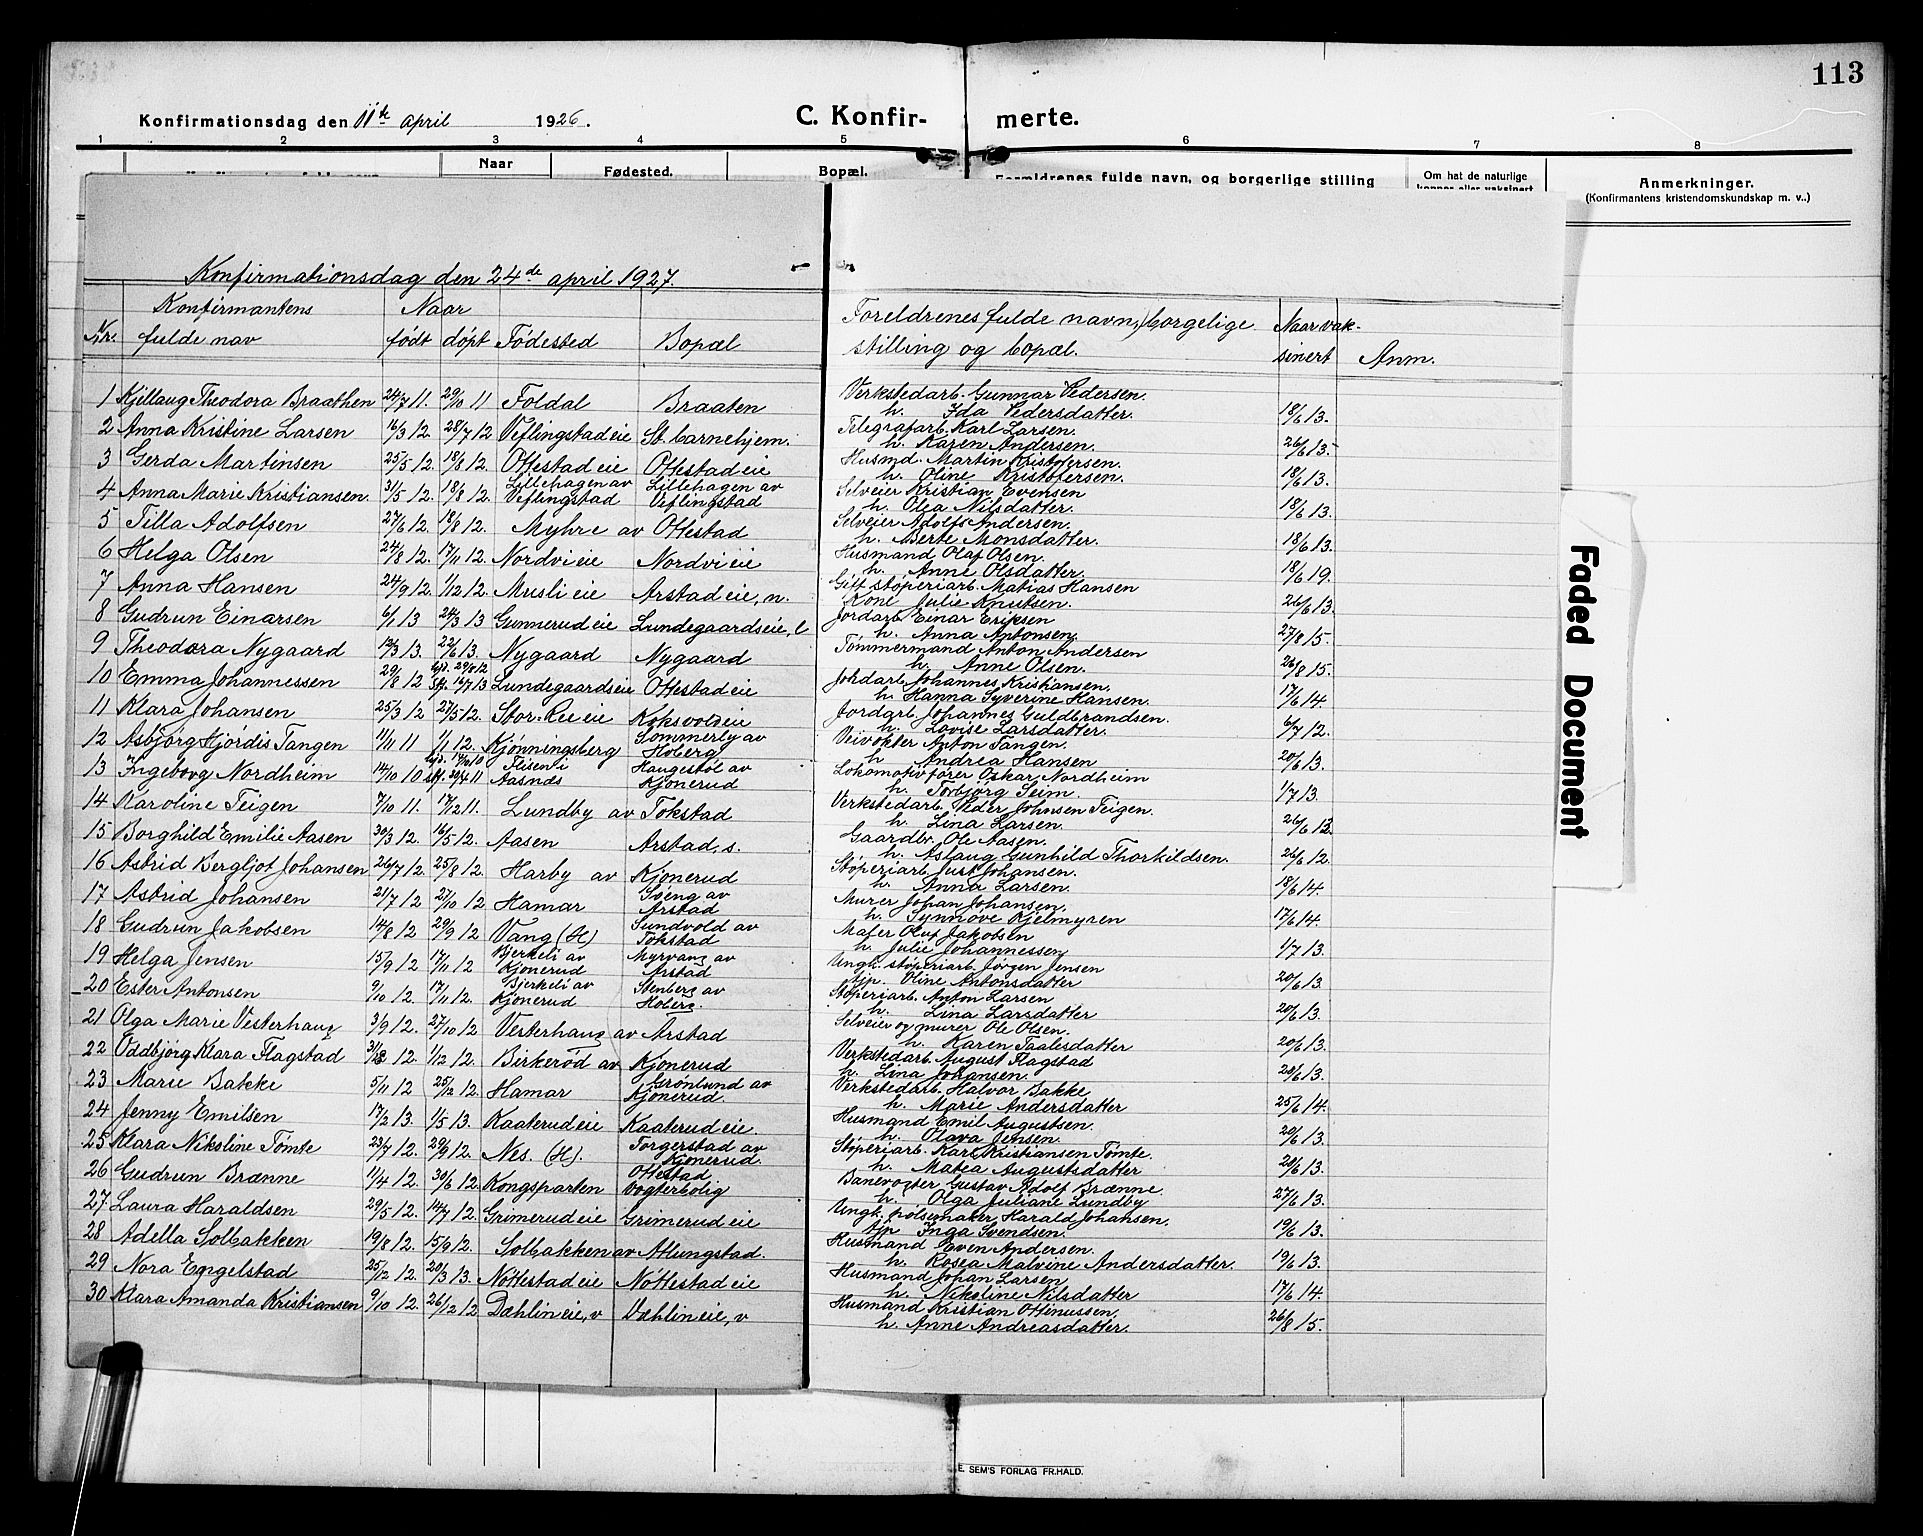 113
Konfirmationsdag den 11te april 1926.
C. Konfir- merte.
1 2 3 4 5 6 7 8
Naar Fødested. Bopæl. Formldrenes fulde navn, og borgerlige stilling Om hat de naturlige Anmerkninger.
(Konfirmantens kristendomskundskap m. v..)
Konfirmationsdag den 24de april 1927.
Konfirmantens Naar Foreldrenes fulde navn, borgelige Naar vak-
Nr. fulde nav født døpt Fødested Bopæl stilling og bopæl. sinert Anm.
1 Kjellaug Theodora Braathen 24/7 11. 29/10 11 Foldal Braaten Verkstedarb. Gunnar Pedersen.
h. Ida Pedersdatter. 18/6 13.
2 Anna Kristine Larsen 16/3 12. 28/7 12 Veflingstadeie St. barnehjem. Telegrafarb. Karl Larsen.
h. Karen Andersen. 26/6 13.
3 Gerda Martinsen 25/5 12. 18/8 12. Ottestadeie Ottestadeie Husmd. Martin Kristofersen.
h. Oline Kristofersen. 18/6 13.
4 Anna Marie Kristiansen 31/5 12. 18/8 12. Lillehagen av Veflingstad Lillehagen av Veflingstad Selveier Kristian Evensen
h. Olea Nilsdatter. 18/6 13.
5 Tilla Adolfsen 27/6 12. 18/8 12. Myhre av Ottestad Selveier Adolf Andersen.
h. Berte Monsdatter. 18/6 13.
6 Helga Olsen 24/8 12. 17/11 12. Nordvieie Nordvieie Husmand Olaf Olsen.
h. Anne Olsdatter. 18/6 19.
7 Anna Hansen 24/9 12. 1/12 12. Muslieie Arstadeie, n. Gift støperiarb. Matias Hansen
Kone Julie Knutsen. 26/6 13.
8 Gudrun Einarsen 6/1 13 24/3 13 Gunnerudeie Lundegaardseie, l Jordarb. Einar Eriksen
h. Anna Antonsen. 27/8 15.
9 Theodora Nygaard 12/3 13. 22/6 13. Nygaard Nygaard Tømmermand Anton Andersen
h. Anne Olsen. 26/8 15.
10 Emma Johannessen 29/8 12 hjd. 29/8 12 stf. 16/7 13 Lundegaardseie Ottestadeie Johdarb. Johannes Kristiansen.
h. Hanna Syverine Hansen. 17/6 14.
11 Klara Johansen 25/3 12 27/5 12. Stor-Reeie Koksvoldeie Jordarb. Johannes Guldbrandsen.
h. Lovise Larsdatter. 6/7 12.
12 Asbjørg Hjørdis Tangen 11/11 11 1/1 12. Kjønningsberg Sommerby av Hoberg Veivokter Anton Tangen.
h. Andrea Hansen 20/6 13.
13 Ingeborg Nordheim 14/10 10 hjd. 17/10 10 stf. 29/4 11 Flisen i Aasnes Haugestøl av Kjonerud Lokomotivfører Oskar Nordheim
h. Torbjørg Seim. 1/7 13.
14 Karoline Teigen 7/10 11. 17/12 11. Lundby av Tokstad Verkstedarb. Peder Johnsen Teigen.
h. Lina Larsen. 26/6 12.
15 Borghild Emilie Aasen 30/3 12. 16/5 12. Aasen Arstad, s. Gaardbr. Ole Aasen.
h. Aslaug Gunhild Thorkildsen. 26/6 12.
16 Astrid Bergljot Johansen 26/7 12. 25/8 12. Harby av Kjonerud Støperiarb. Just Johansen.
h. Anna Larsen. 18/6 14.
17 Astrid Johansen 21/7 12 27/10 12 Hamar Sveng av Arstad Murer Johan Johansen.
h. Synnøve Kjelmyren 17/6 14.
18 Gudrun Jakobsen 14/8 12 29/9 12 Vang (H) Sundvold av Tokstad Maler Oluf Jakobsen
h. Julie Johannessen 1/7 13.
19 Helga Jensen 15/9 12 17/11 12 Bjerkeli av Kjonerud Myrvang av Arstad Ungk. støperiarb. Jørgen Jensen
Pjp. Oline Antonsdatter 20/6 13.
20 Ester Antonsen 9/10 12. 17/11 12. Bjerkeli av Kjonerud Stenberg av Hoberg. Støperiarb. Anton Larsen
h. Lina Larsdatter 20/6 13.
21 Olga Marie Vesterhaug 3/9 12. 27/10 12. Vesterhaug av Arstad Selveier og murer Ole Olsen.
h. Karen Taalesdatter 20/6 13.
22 Oddbjørg Klara Flagstad 12. 1/12 12. Birkerød av Kjonerud Verkstedarb. August Flagstad
h. Lina Johansen. 20/6 13.
23 Marie Bakke 5/11 12 25/12 12. Hamar Grønlund av Kjonerud. Verkstedarb. Halvor Bakke
h. Marie Andersdatter 25/6 14.
24 Jenny Emilsen 17/2 13. 1/5 13. Kaaterudeie Kaaterudeie. Husmand Emil Augustsen.
h. Olava Jensen. 20/6 13.
25 Klara Nikoline Tømte 23/7 12. 29/9 12. Nes. (H). Torgerstad av Kjonerud. Støperiarb. Karl Kristiansen Tømte.
h. Matea Augustsdatter 20/6 13.
26 Gudrun Brænne 1/4 12. 30/6 12. Kongsparten Ottestad vogterbolig Banevogter Gustav Adolf Brænne.
h. Olga Juliane Lundby 27/6 13.
27 Laura Haraldsen 29/5 12. 14/7 12. Grimerudeie Grimerudeie Ungk. pølsemaker Harald Johansen.
Pjp Inga Svendsen. 19/6 13.
28 Adella Solbakken 19/8 12. 15/9 12. Solbakken av Atlungstad. Husmand Even Andersen.
h. Rosea Malvine Andersdatter. 19/6 13.
29 Nora Engelstad 25/12 12. 20/3 13. Nøttestadeie Nøttestadeie Husmand Johan Larsen
h. Nikoline Nilsdatter 17/6 14.
30 Klara Amanda Kristiansen 9/10 12. 26/12 12 Dæhlineie, v Dæhlineie, v Husmand Kristian Ottinussen.
h. Anne Andreasdatter. 26/8 15.
Faded Document
E. SEM'S FORLAG FR.HALD.